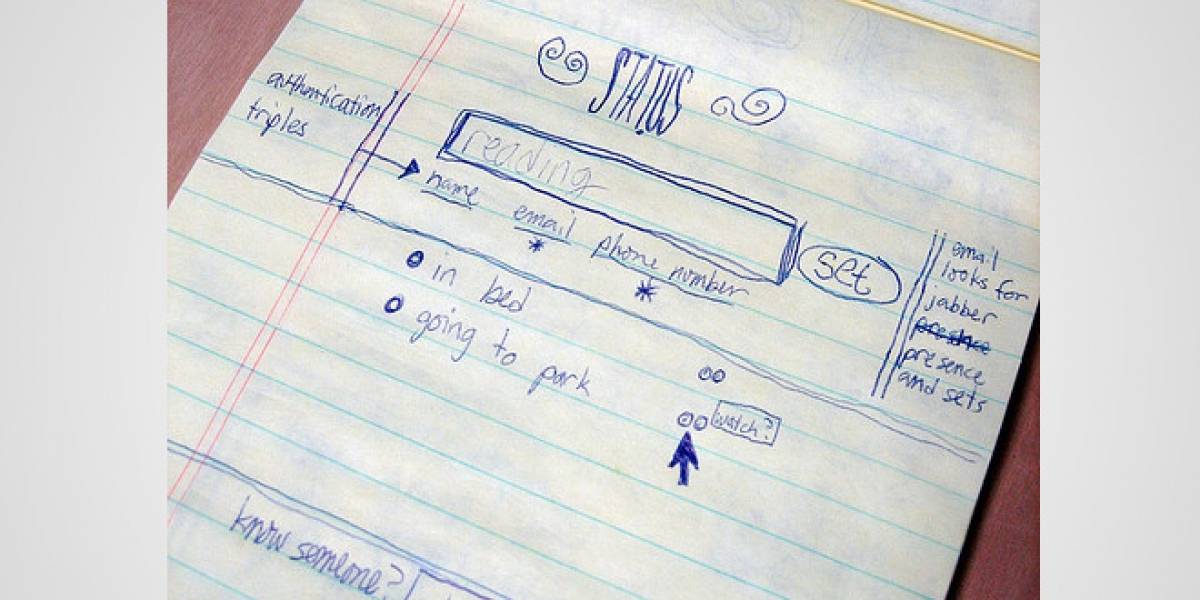 STATUS
authentication
triples
reading
name email phone number
set
email
looks for
jabber
presence
and sets
in bed
going to park
watch?
know someone?